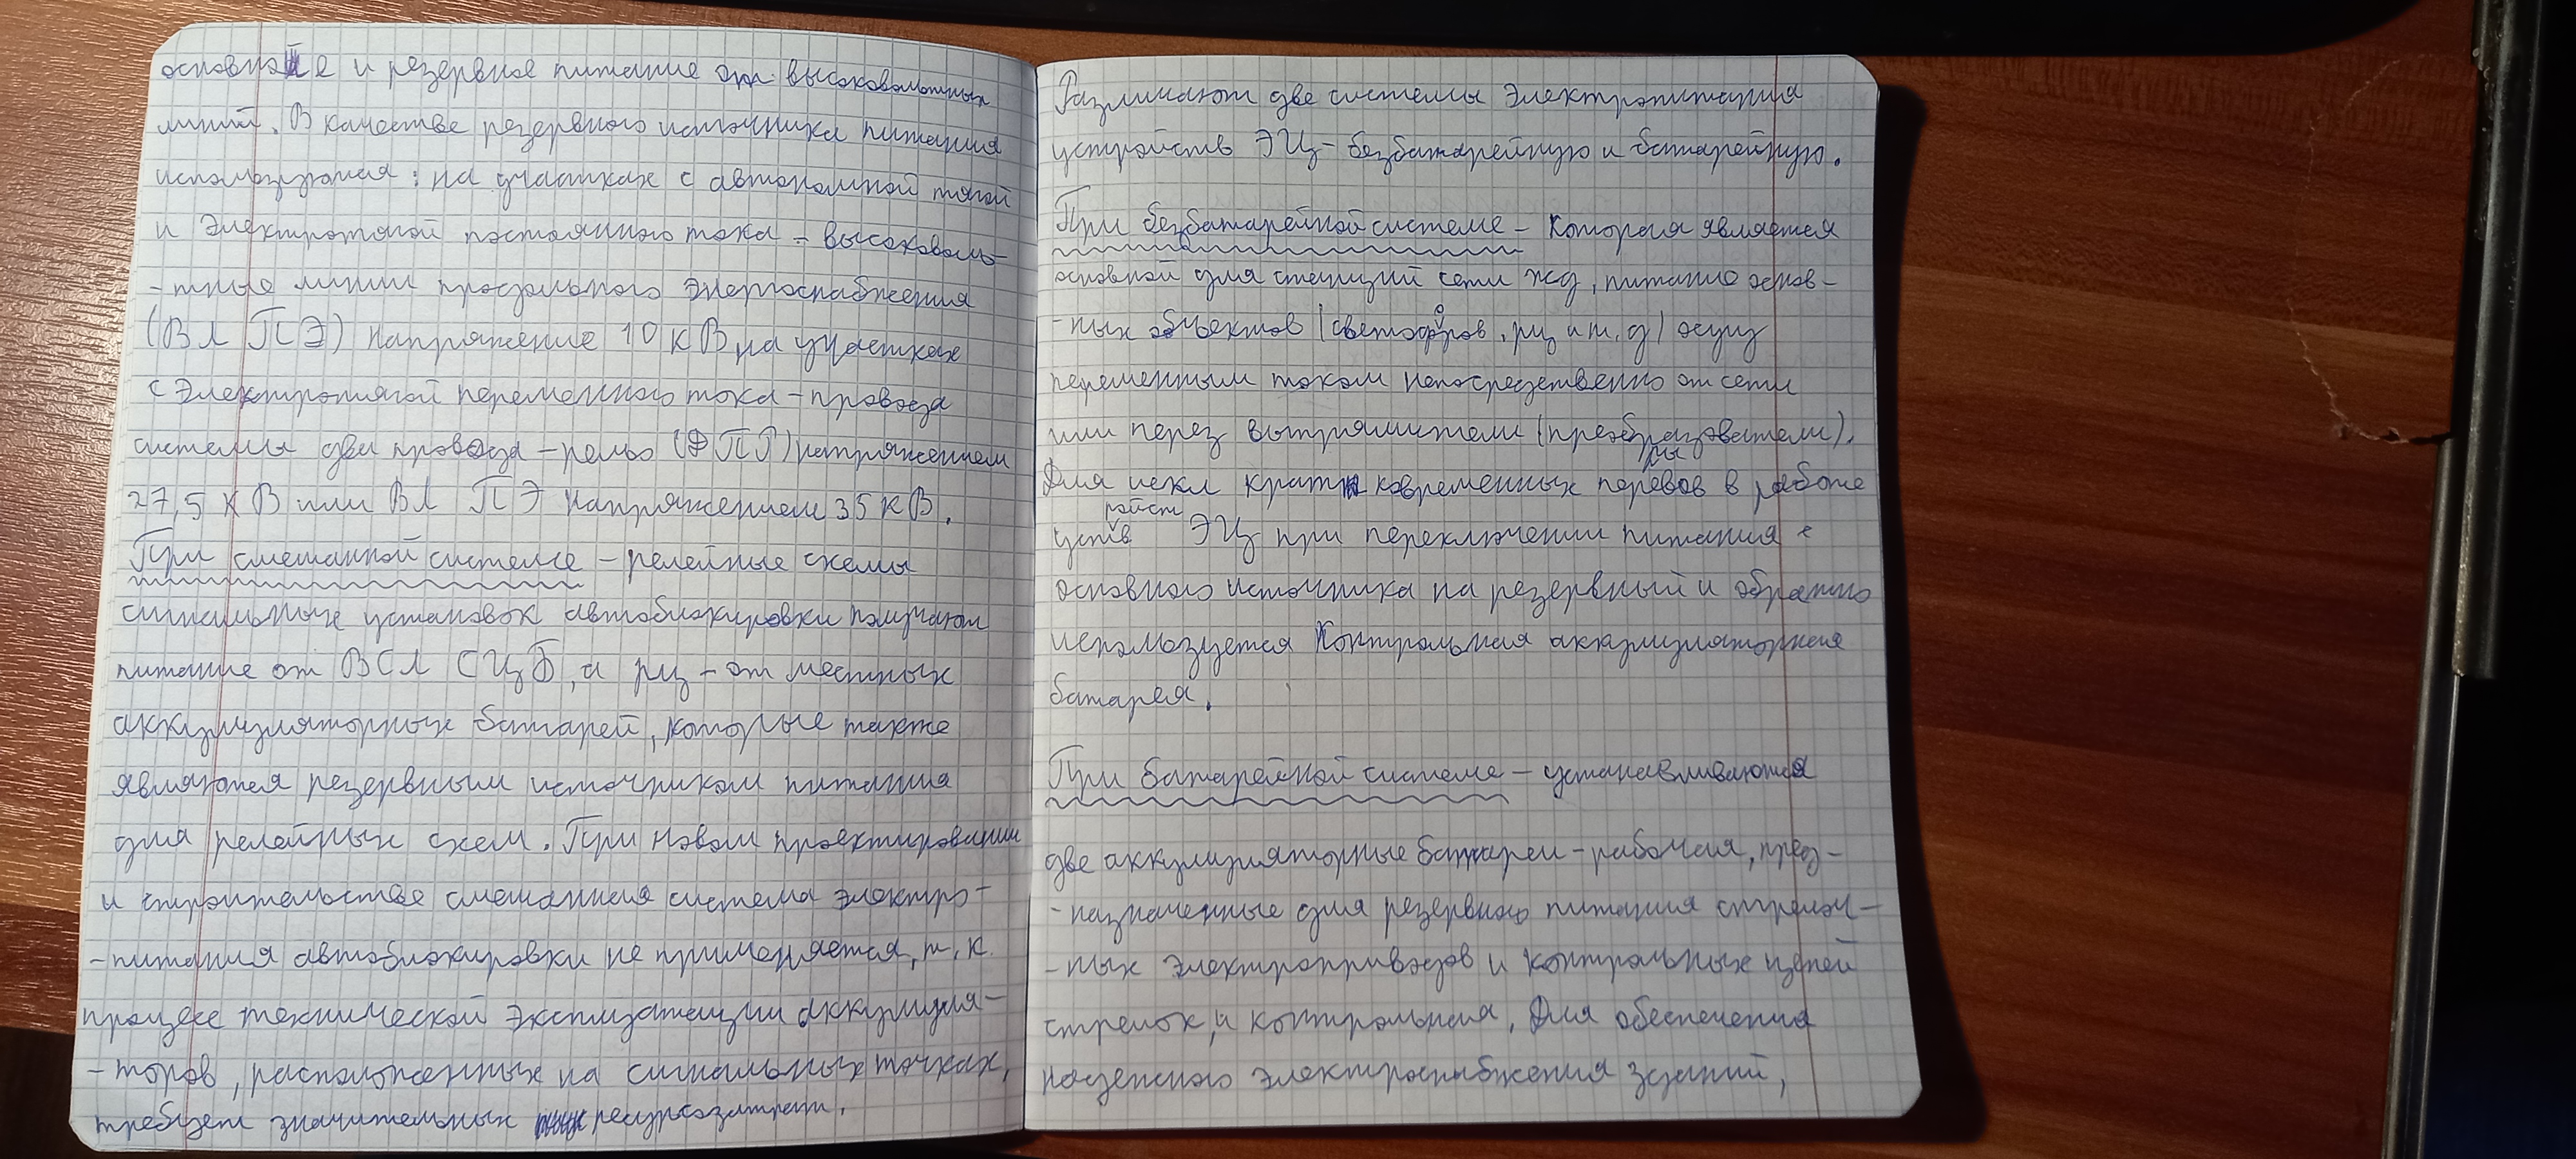 основное и резервное питание от высоковольтных
линий. В качестве резервного источника питания
используются: на участках с автономной тягой
и электротягой постоянного тока - высоковоль-
-тные линии продольного энергоснабжения
(ВЛ ПЭ) напряжение 10 кВ, на участках
с электротягой переменного тока - провода
системы два провода - рельс (ДПР) напряжением
27,5 кВ или ВЛ ПЭ напряжением 35 кВ.
При смешанной системе - релейные схемы
сигнальных установок автоблокировки получают
питание от ВСЛ СЦБ, а рц - от местных
аккумуляторных батарей, которые также
являются резервным источником питания
для релейных схем. При новом проектировании
и строительстве смешанная система электро-
-питания автоблокировки не применяется, т.к.
процесс технической эксплуатации аккумуля-
-торов, расположенных на сигнальных точках,
требует значительных ресурсозатрат.
Различают две системы электропитания
устройств ЭЦ - безбатарейную и батарейную.
При безбатарейной системе - которая является
основной для станций сети жд, питание основ-
-ных объектов (светофоров, рц и т.д) осущ
переменным током непосредственно от сети
или через выпрямители (преобразователи).
Для искл кратковременных перерывов в работе
устройств ЭЦ при переключении питания с
основного источника на резервный и обратно
используется контрольная аккумуляторная
батарея.
При батарейной системе - устанавливаются
две аккумуляторные батареи - рабочая, пред-
-назначенные для резервного питания стрелоч-
-ных электроприводов и контрольных цепей
стрелок, и контрольная. Для обеспечения
надежного электроснабжения зданий,